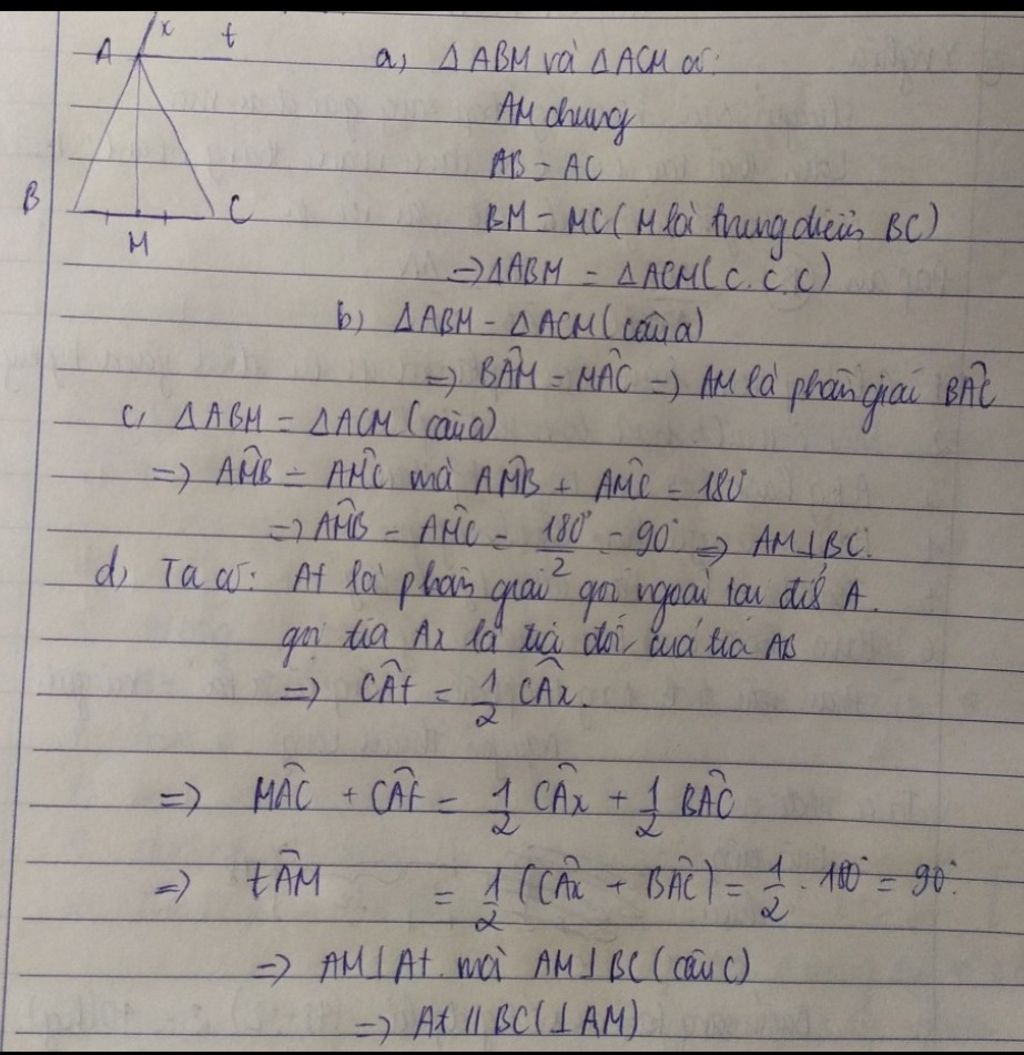 x
t
A
B
C
M
a, ΔABM và ΔACM có:
AM chung
AB = AC
BM = MC (M là trung điểm BC)
=> ΔABM = ΔACM (c.c.c)
b, ΔABM = ΔACM (câu a)
=> BÂM = MÂC => AM là phân giác BÂC
c, ΔABM = ΔACM (câu a)
=> AM̂B = AM̂C mà AM̂B + AM̂C = 180°
=> AM̂B = AM̂C = 180°/2 = 90° => AM⊥BC.
d, Ta có: At là phân giác góc ngoài tại đỉ' A.
gọi tia Ax là tia đối của tia AB
=> CÂt = 1/2 CÂx.
=> MÂC + CÂt = 1/2 CÂx + 1/2 BÂC
=> tÂM = 1/2 (CÂx + BÂC) = 1/2 . 180° = 90°.
=> AM⊥At mà AM⊥BC (câu c)
=> At // BC (⊥AM)